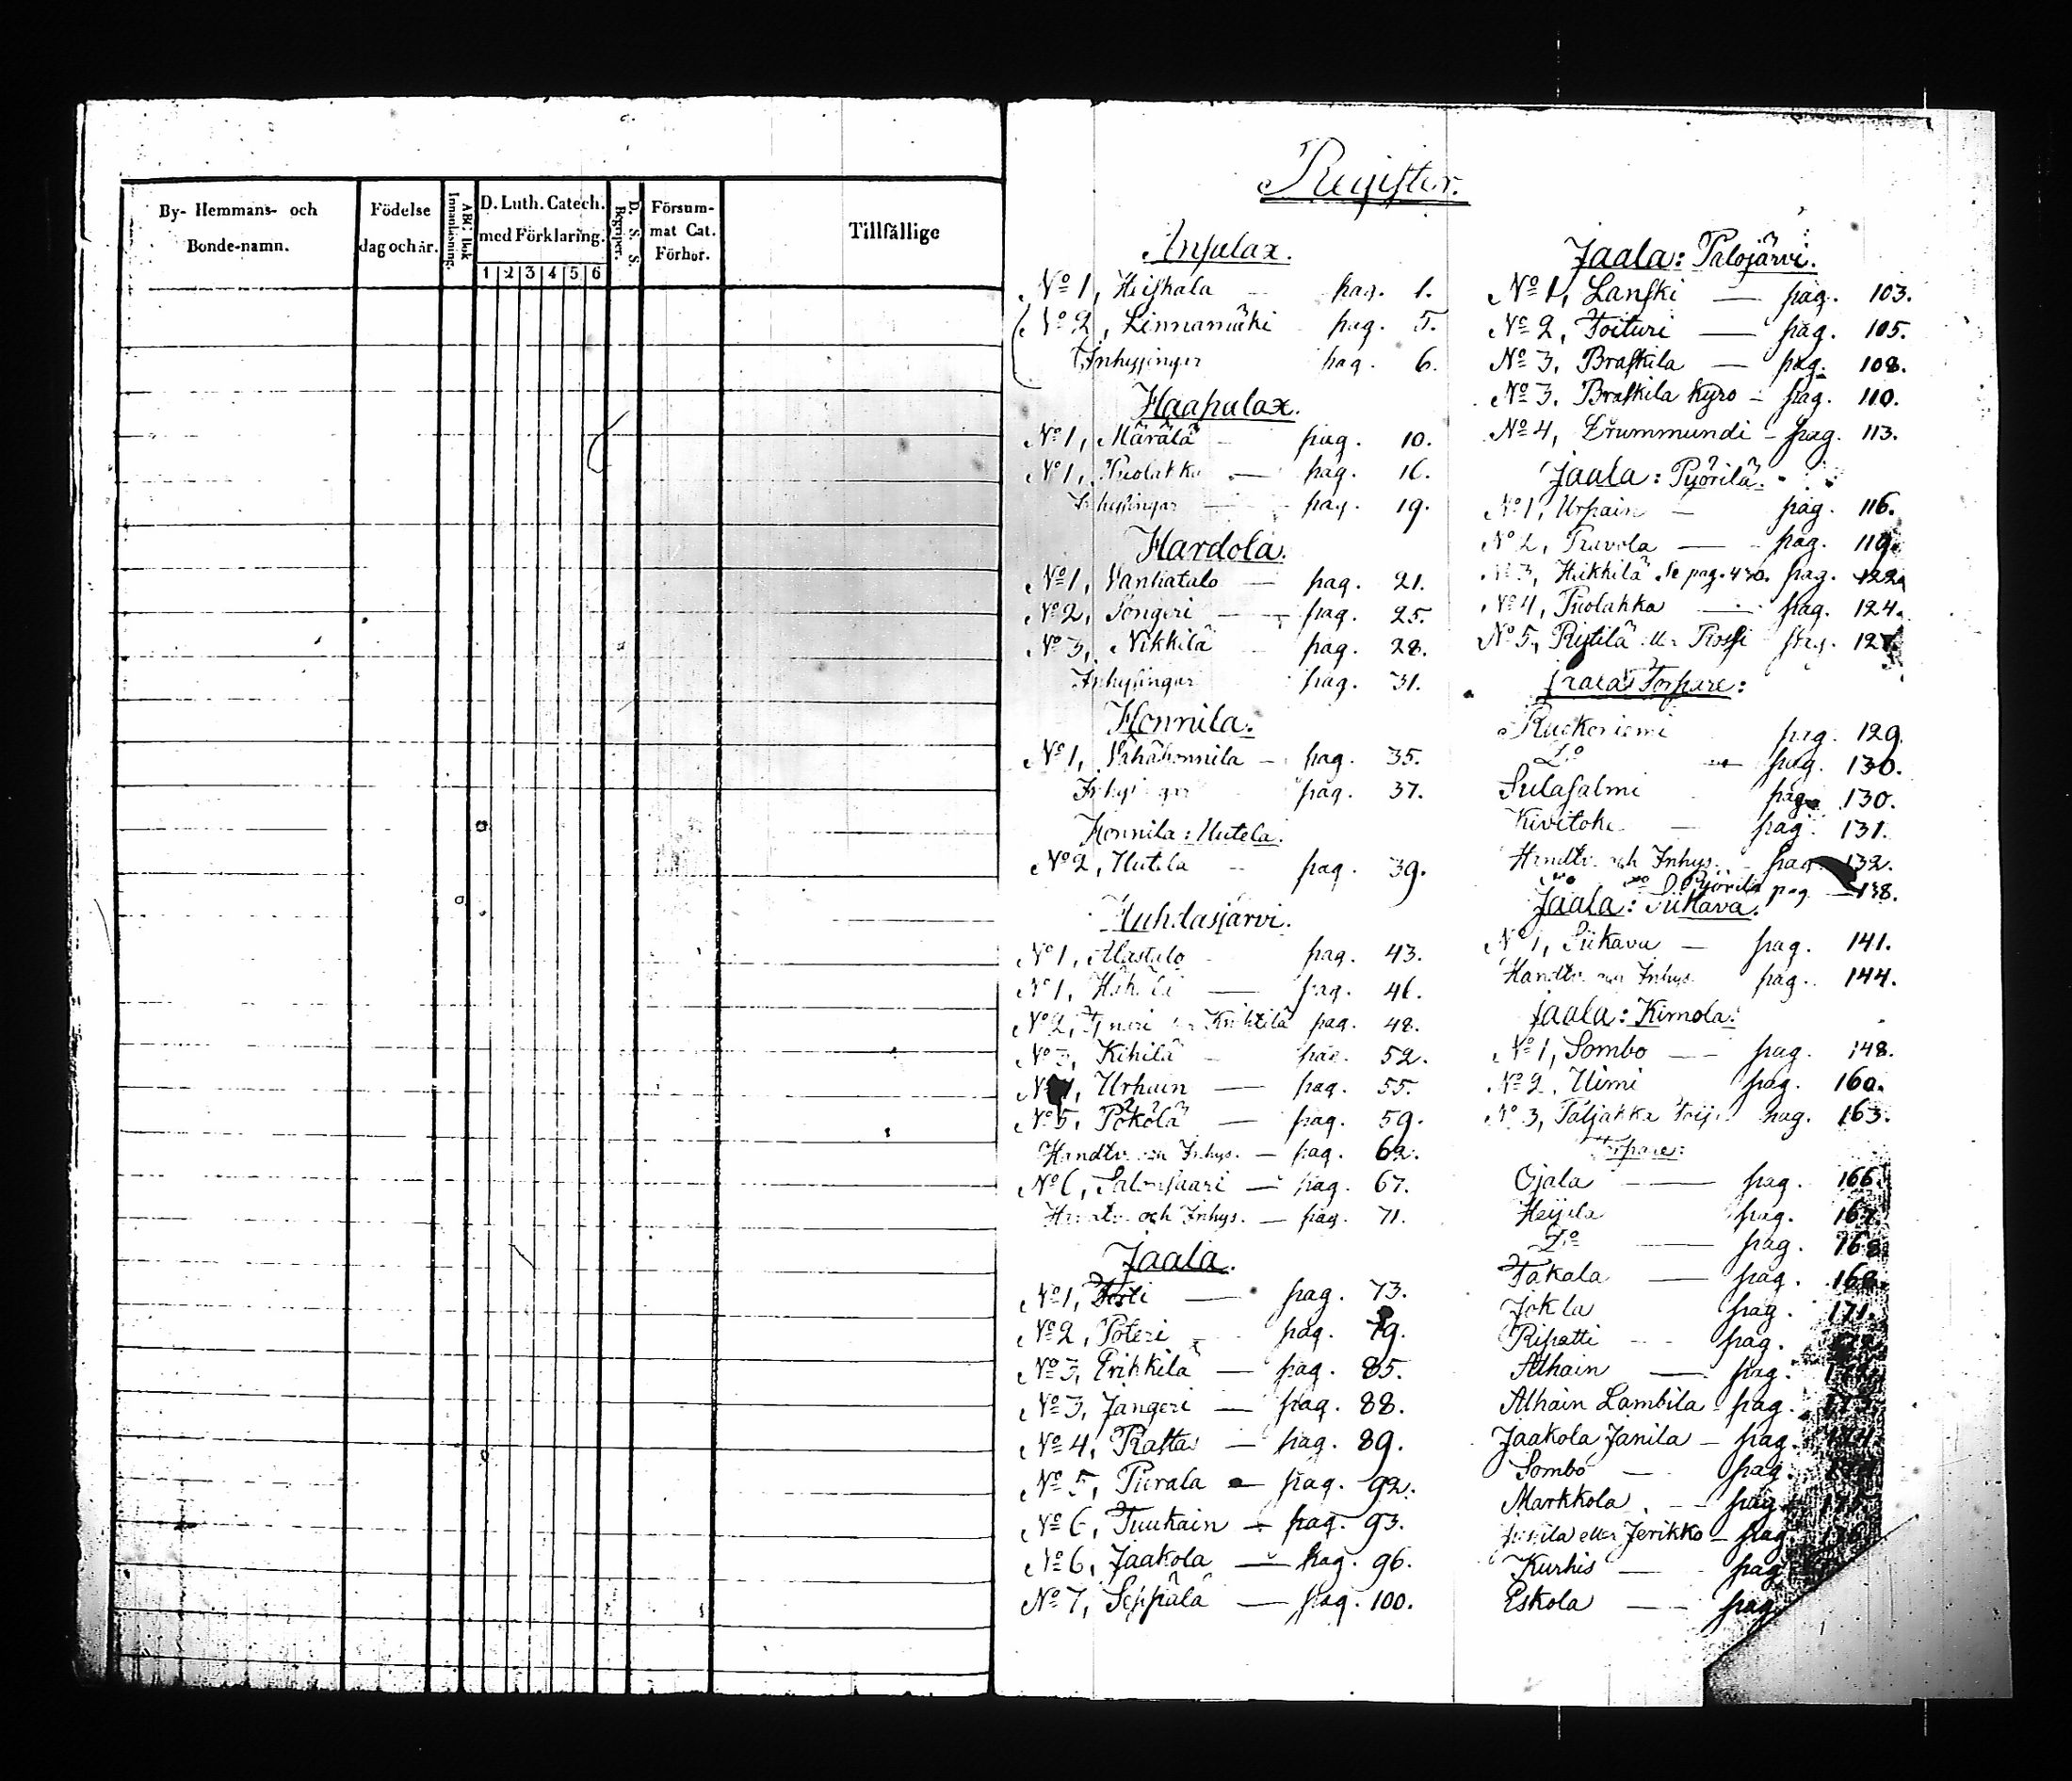 By- Hemmans- och
Bonde-namn.
Födelse
dag och år.
ABC. Bok
Innanläsning.
D. Luth. Catech.
med Förklaring.
1 2 3 4 5 6
D. S. S.
Begreper.
Försum-
mat Cat.
Förhör.
Tillfällige
Register.
Ansulax.
No 1, Heiskala pag. 1.
No 2, Linnamäki pag. 5.
Inhysingar pag. 6.
Haapulax.
No 1, Märälä pag. 10.
No 1, Puolakka — pag. 16.
Inhysingar — pag. 19.
Hardola.
No 1, Vanhatalo — pag. 21.
No 2, Söngeri — pag. 25.
No 3, Nikkilä pag. 28.
Inhysingar pag. 31.
Honnila.
No 1, Vähähonnila — pag. 35.
pag. 37.
Honnila: Uutela.
No 2, Uutela — pag. 39.
Huhdasjärvi.
No 1, Alastalo pag. 43.
No 1, — pag. 46.
No 2, pag. 48.
No 3, Kihilä — pag. 52.
Urhain — pag. 55.
No 5, Pökölä — pag. 59.
Handtv. och Inhys. — pag. 62.
No 6, Salonsaari — pag. 67.
och Inhys. — pag. 71.
Jaala.
No 1, — pag. 73.
No 2, Poteri pag. 79.
No 3, Erikkilä — pag. 85.
No 3, Jangeri — pag. 88.
No 4, Rattas — pag. 89.
No 5, Pierala — pag. 92.
No 6, Tuukain — pag. 93.
No 6, Jaakola — pag. 96.
No 7, Seppälä — pag. 100.
Jaala: Palojärvi.
No 1, Lanski — pag. 103.
No 2, Toituri — pag. 105.
No 3, Braskila — pag. 108.
No 3, Braskila Kyrö — pag. 110.
No 4, Drummundi — pag. 113.
Jaala: Pyörilä.
No 1, Urpain — pag. 116.
No 2, Pravola — pag. 119.
No 3, Heikkilä Se pag. 430. pag. 122.
No 4, Puolakka — pag. 124.
No 5, Ristilä pag. 127.
Jaala Torpare:
pag. 129.
Do — pag. 130.
Sulasalmi pag. 130.
— pag. 131.
Handtv. och Inhys. pag. 132.
Do Do Pyörilä pag. — 138.
Jaala: Siikava.
No 1, Siikava — pag. 141.
Handtv. och Inhys. pag. 144.
Jaala: Kimola.
No 1, Sombo — pag. 148.
No 2, Uimi pag. 160.
No 3, Paljakka pag. 163.
Torpare:
Ojala — pag. 166.
pag. 167.
Do — pag. 168.
Takala — pag. 168.
pag. 171.
Ripatti — pag.
Alhain — pag.
Alhain Lambila — pag.
Jaakola Janila — pag.
Sombo — pag.
Markkola — pag.
eller Jerikko — pag.
Kurhis — pag.
Eskola — pag.